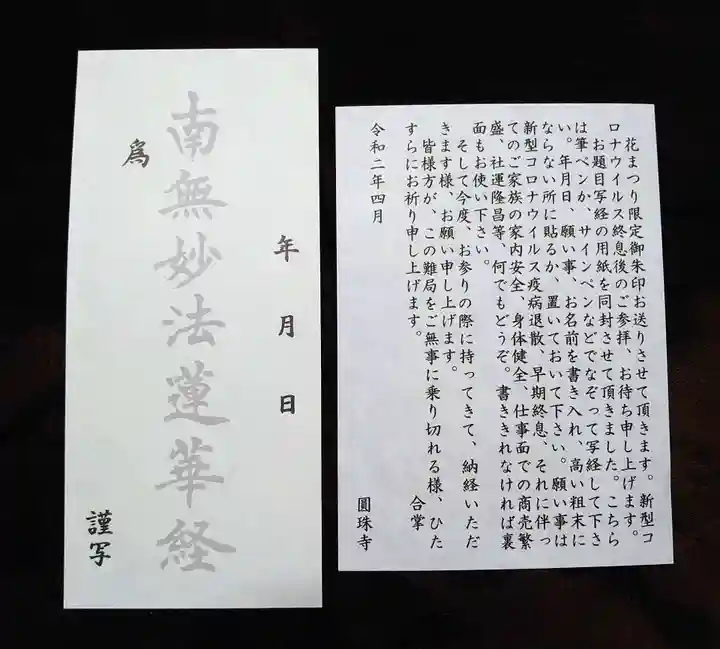 年 月 日
南無妙法蓮華経
爲
謹写
花まつり限定御朱印お送りさせて頂きます。新型コ
ロナウイルス終息後のご参拝、お待ち申し上げます。
お題目写経の用紙を同封させて頂きました。こちら
は筆ペンか、サインペンなどでなぞって写経して下さ
い。年月日、願い事、お名前を書き入れ、高い粗末に
ならない所に貼るか、置いておいて下さい。願い事は
新型コロナウイルス疫病退散、早期終息、それに伴っ
てのご家族の家内安全、身体健全、仕事面での商売繁
盛、社運隆昌等、何でもどうぞ。書ききれなければ裏
面もお使い下さい。
そして今度、お参りの際に持ってきて、納経いただ
きます様、お願い申し上げます。
皆様方が、この難局をご無事に乗り切れる様、ひた
すらにお祈り申し上げます。 合掌
令和二年四月
圓珠寺